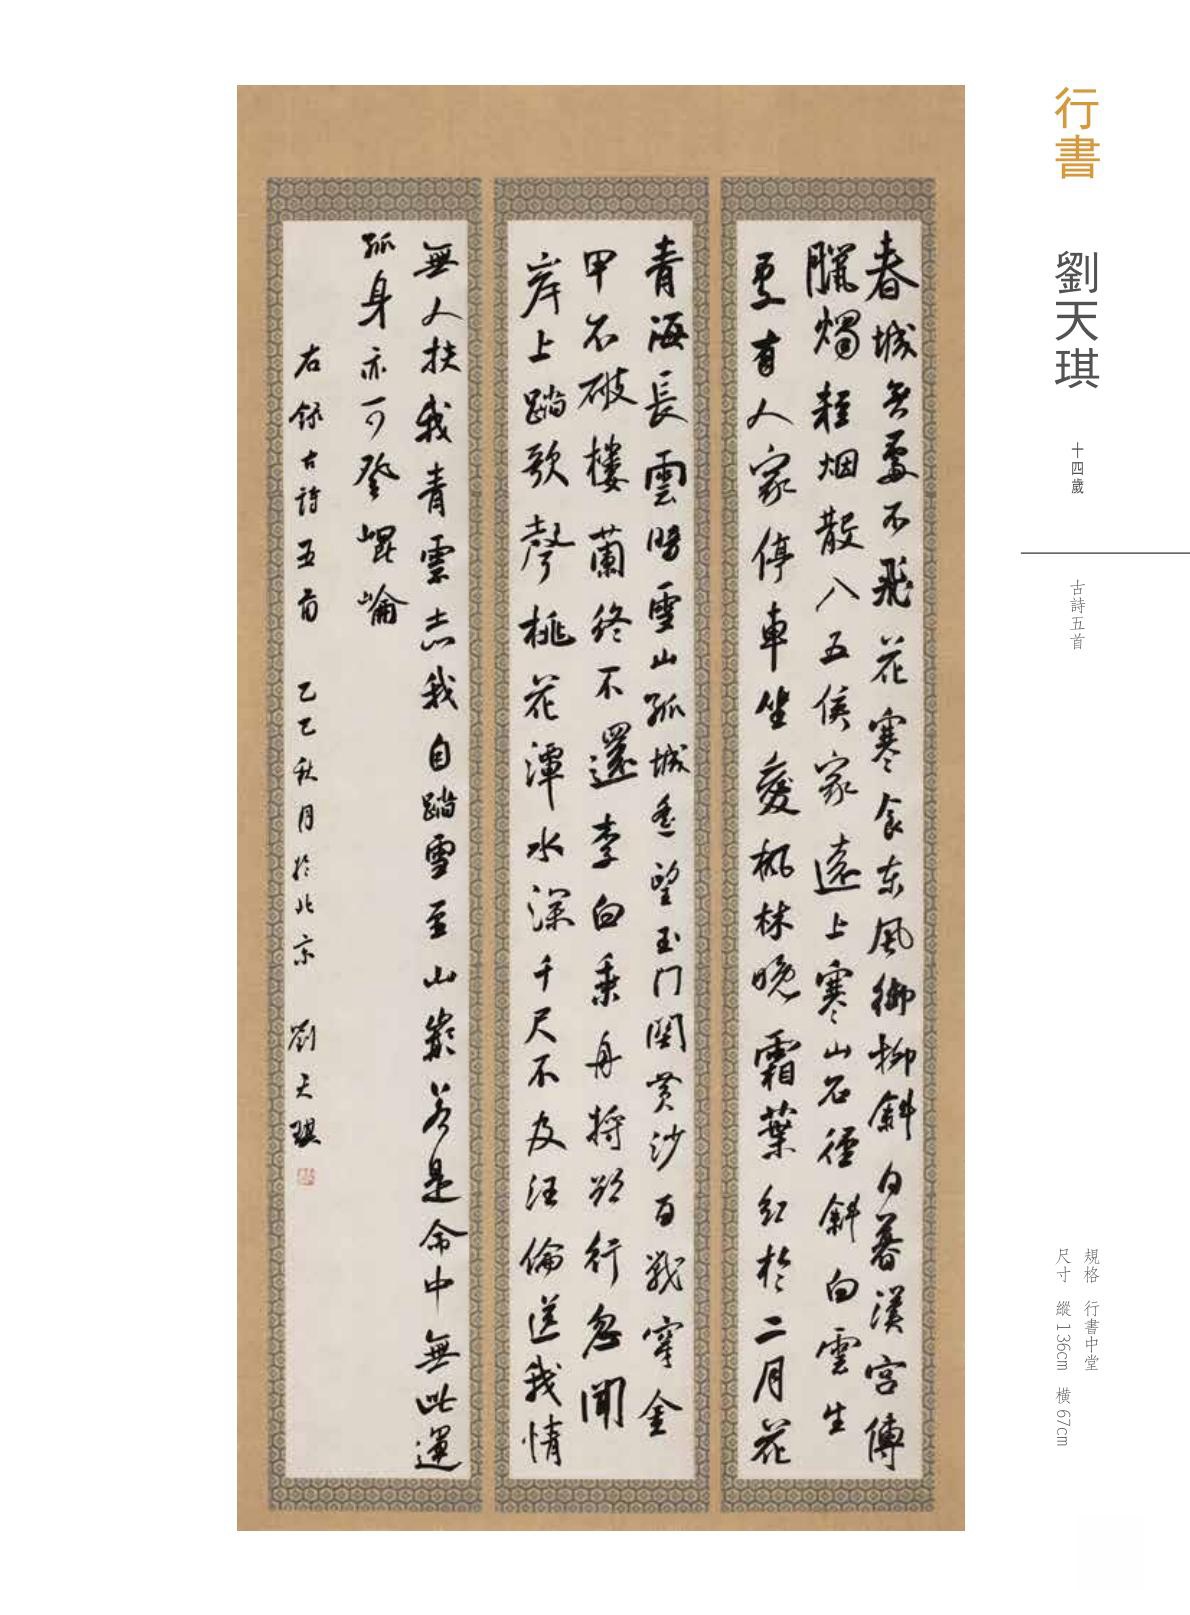 行書 劉天琪 十四歲
古詩五首
規格 行書中堂
尺寸 縱136cm 橫67cm
春城无處不飛花寒食东風御柳斜日暮漢宮傳
臘燭輕烟散入五侯家遠上寒山石徑斜白雲生
處有人家停車坐愛楓林晚霜葉紅於二月花
青海長雲暗雪山孤城遥望玉门関黄沙百戰穿金
甲不破樓蘭終不還李白乘舟將欲行忽聞
岸上踏歌聲桃花潭水深千尺不及汪倫送我情
無人扶我青雲志我自踏雪至山巔若是命中無此運
孤身亦可登崐崘
右錄古詩五首 乙巳秋月於北京 劉天琪